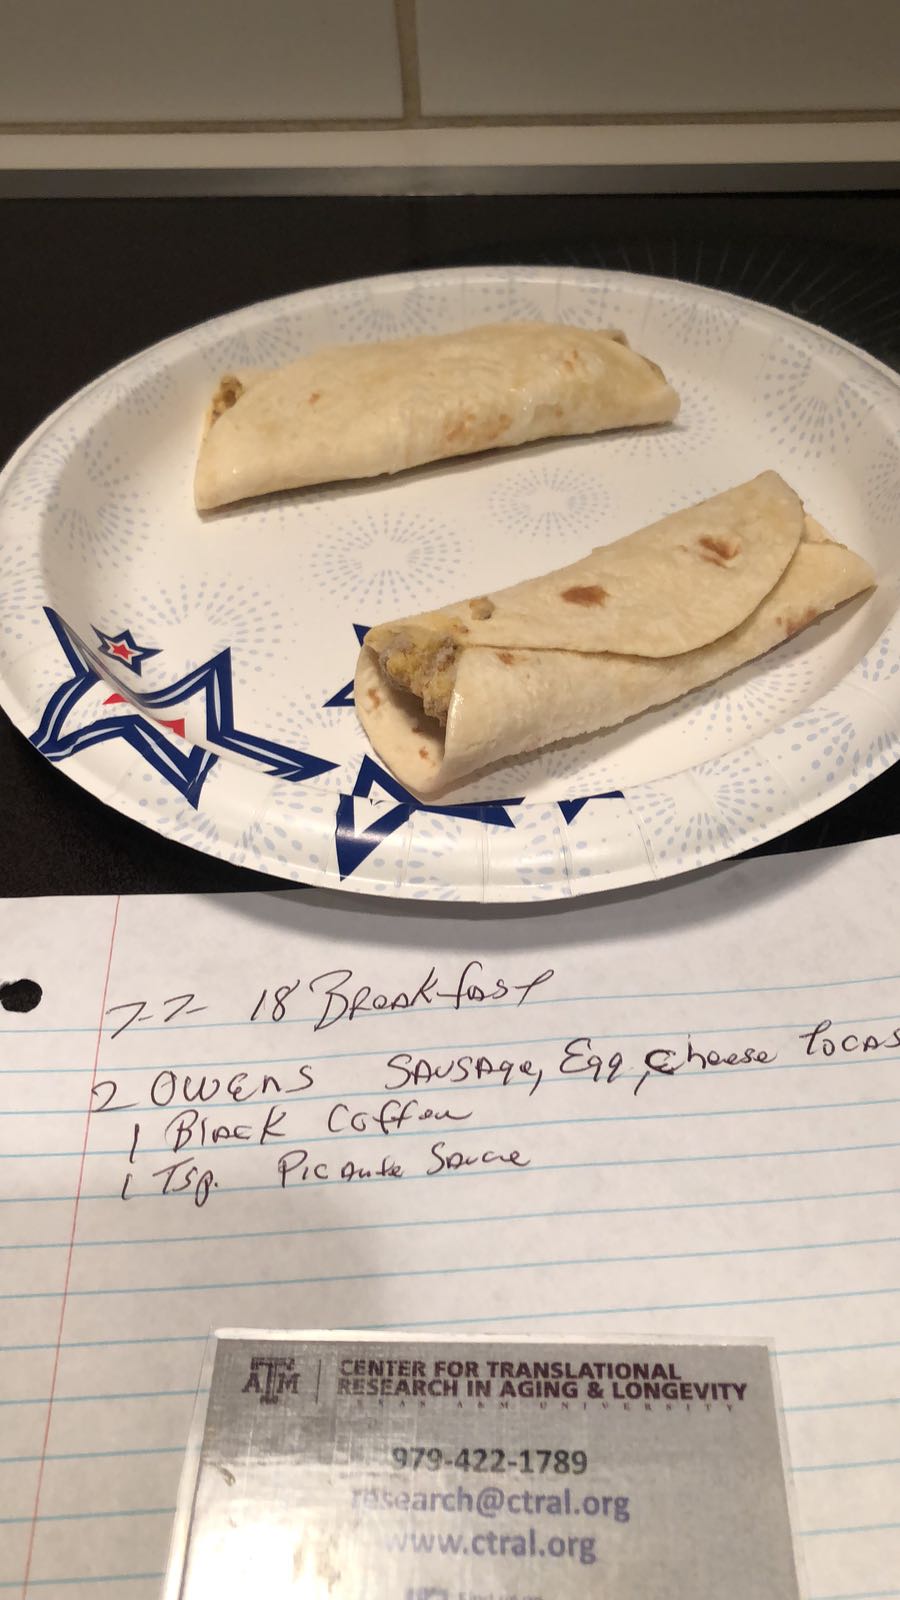 7-7- 18 Breakfast
2 Owens Sausage, Egg, Cheese Tocas
1 Black Coffee
1 Tsp. Picante Sauce
ATM | CENTER FOR TRANSLATIONAL
RESEARCH IN AGING & LONGEVITY
TEXAS A&M UNIVERSITY
979-422-1789
research@ctral.org
www.ctral.org